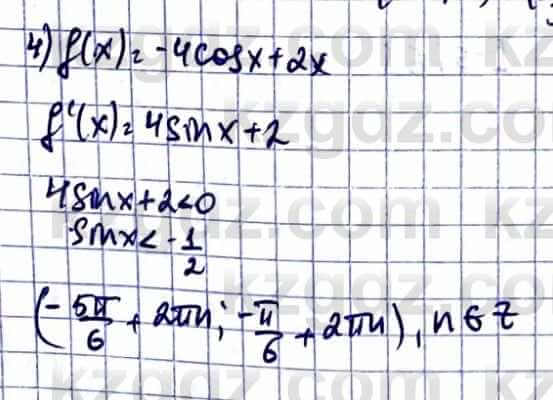 4) f(x) = -4cosx+2x
f'(x) = 4sinx+2
4sinx+2<0
sinx < -1/2
(-5π/6 + 2πn; -π/6 + 2πn), n∈Z